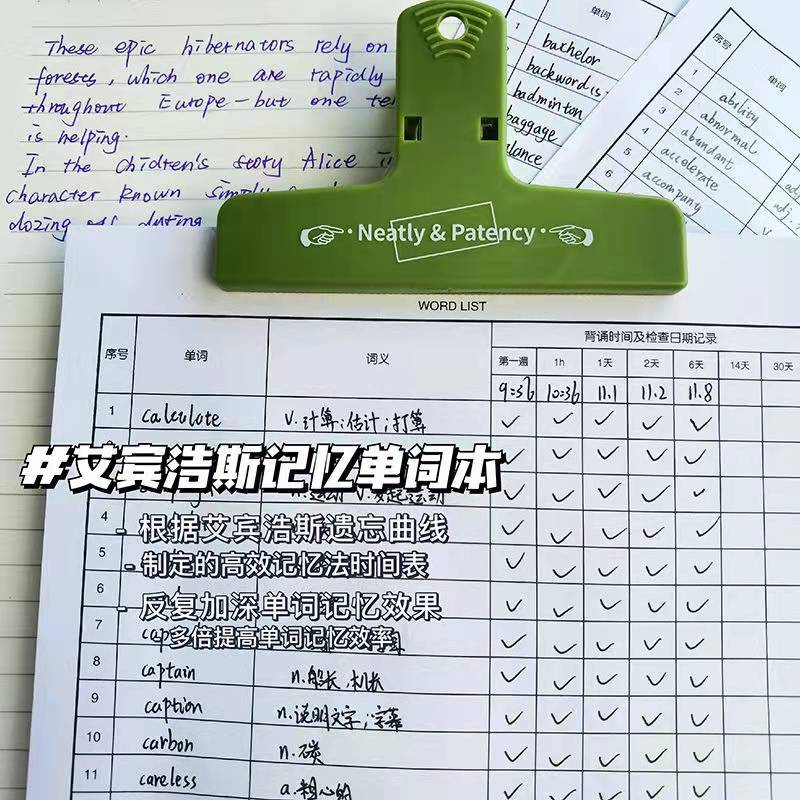 These epic hibernators rely on
forests, which one are rapidly
throughout Europe – but one
is helping.
In the children's story Alice
character known simply
dozing off during
单词
1
bachelor
backwords
badminton
baggage
序号
单词
1
ability
2
abnormal
3
abundant
4
accelerate
5
accompany
6
adj.
Neatly & Patency
WORD LIST
序号 单词 词义 背诵时间及检查日期记录
第一遍 1h 1天 2天 6天 14天 30天
9:36 10:36 11.1 11.2 11.8
1 calculate v.计算;估计;打算 ✓ ✓ ✓ ✓ ✓
#艾宾浩斯记忆单词本
4
- 根据艾宾浩斯遗忘曲线
5
- 制定的高效记忆法时间表
6
- 反复加深单词记忆效果
7
- 多倍提高单词记忆效率
8 captain n.船长,机长 ✓ ✓ ✓ ✓ ✓
9 caption n.说明文字;字幕 ✓ ✓ ✓ ✓ ✓
10 carbon n.碳 ✓ ✓ ✓ ✓ ✓
11 careless a.粗心的 ✓ ✓ ✓ ✓ ✓